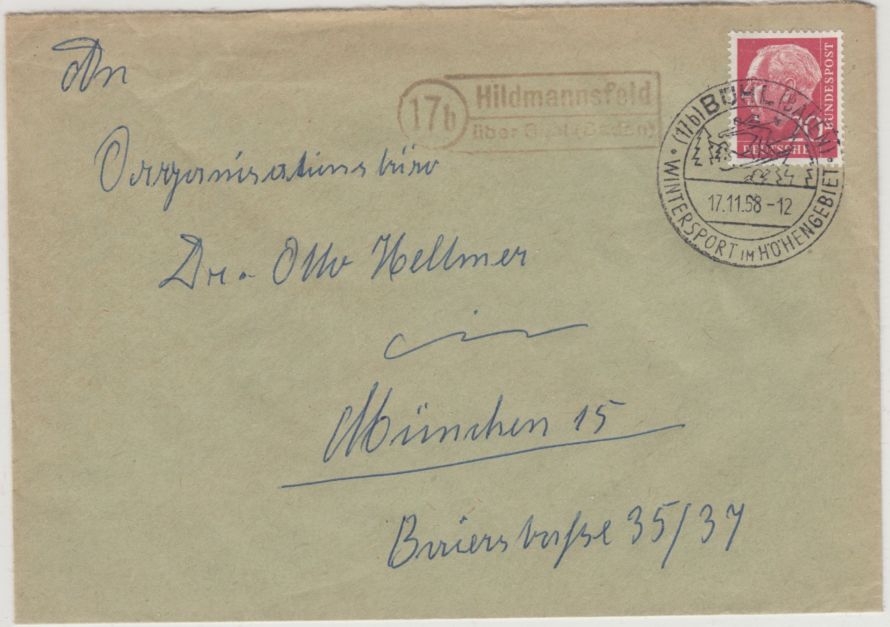 An
17b
Hildmannsfeld
über Bühl (Baden)
(17b) BÜHL (BADEN)
17.11.58-12
WINTERSPORT IM HÖHENGEBIET
DEUTSCHE
BUNDESPOST
Organisationsbüro
Dr. Otto Hellmer
in
München 15
Baierstraße 35/37